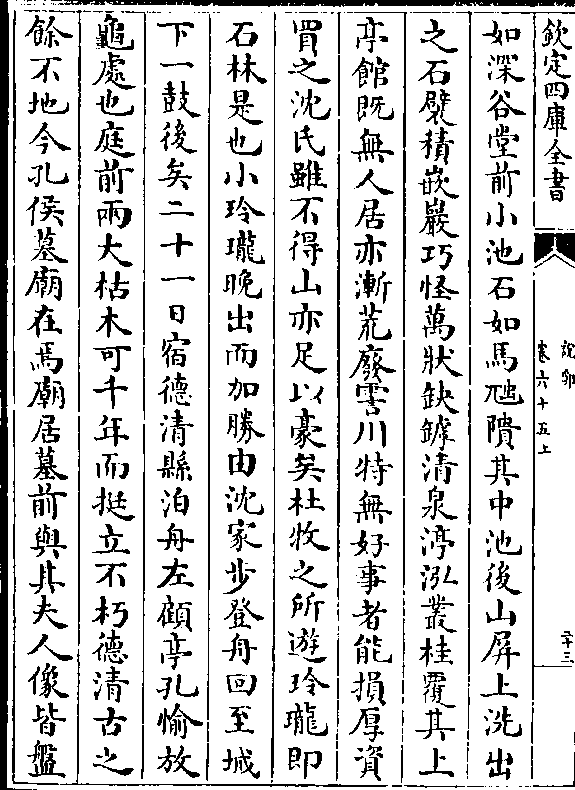 欽定四庫全書
說郛
卷六十五上
二十三
如深谷堂前小池石如馬虺隤其中池後山屏上洗出
之石礕積嵌巖巧怪萬狀缺罅清泉渟泓叢桂覆其上
亭館既無人居亦漸荒廢霅川特無好事者能損厚資
買之沈氏雖不得山亦足以豪矣杜牧之所遊玲瓏即
石林是也小玲瓏晚出而加勝由沈家步登舟回至城
下一鼓後矣二十一日宿德清縣泊舟左顧亭孔愉放
龜處也庭前兩大枯木可千年而挺立不朽德清古之
餘不地今孔侯墓廟在焉廟居墓前與其夫人像皆盤